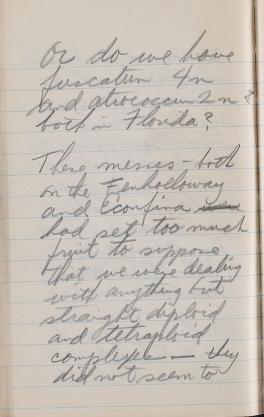 Or do we have
fuscatum 4n
and atrococcum 2n
both in Florida?
These messes - both
on the Fenholloway
and Econfina
had set too much
fruit to suppose
that we were dealing
with anything but
straight diploid
and tetraploid
complexes — they
did not seem to